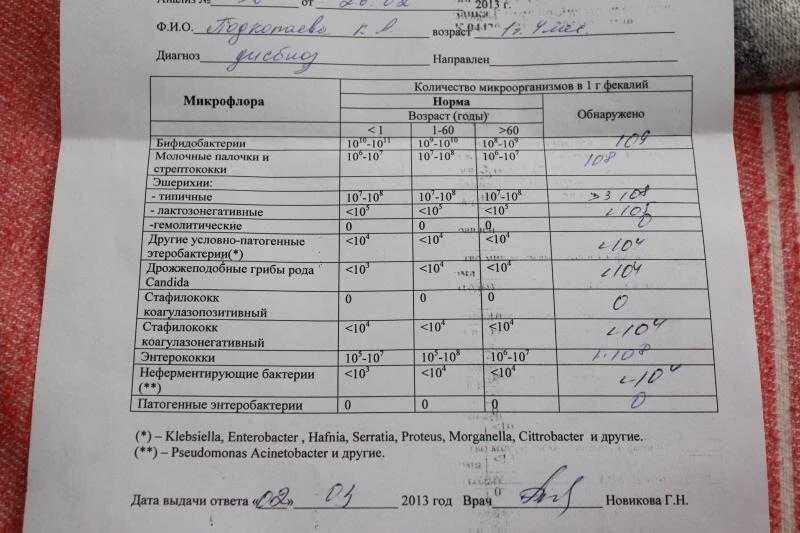 Анализ № от 26.02 2013 г.
Ф.И.О. Подкопаева К. А возраст 1 г. 4 мес.
Диагноз дисбиоз Направлен
Микрофлора Количество микроорганизмов в 1 г фекалий
Норма Обнаружено
Возраст (годы)
< 1 1-60 >60
Бифидобактерии 10¹⁰-10¹¹ 10⁹-10¹⁰ 10⁸-10⁹ 10⁹
Молочные палочки и стрептококки 10⁶-10⁷ 10⁷-10⁸ 10⁶-10⁷ 10⁸
Эшерихии:
- типичные 10⁷-10⁸ 10⁷-10⁸ 10⁷-10⁸ 10⁸
- лактозонегативные <10⁵ <10⁵ <10⁵ <10⁵
-гемолитические 0 0 0 0
Другие условно-патогенные этеробактерии(*) <10⁴ <10⁴ <10⁴ <10⁴
Дрожжеподобные грибы рода Candida <10³ <10⁴ <10⁴ <10⁴
Стафилококк коагулазопозитивный 0 0 0 0
Стафилококк коагулазонегативный <10⁴ <10⁴ ≤10⁴ <10⁴
Энтерококки 10⁵-10⁷ 10⁵-10⁸ 10⁶-10⁷ 10⁸
Неферментирующие бактерии (**) <10³ <10⁴ ≤10⁴ <10⁴
Патогенные энтеробактерии 0 0 0 0
(*) – Klebsiella, Enterobacter , Hafnia, Serratia, Proteus, Morganella, Cittrobacter и другие.
(**) – Pseudomonas Acinetobacter и другие.
Дата выдачи ответа «02» 03 2013 год Врач Новикова Г.Н.